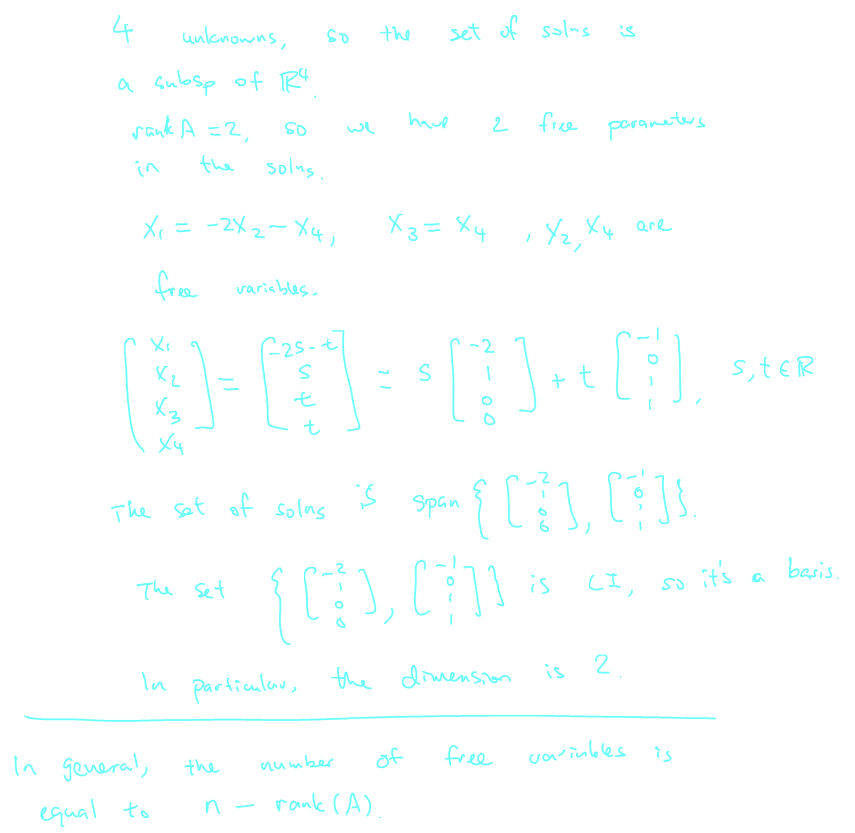 4 unknowns, so the set of solns is
a subsp of ℝ⁴.
rank A = 2, so we have 2 free parameters
in the solns.
X₁ = -2X₂ - X₄, X₃ = X₄, X₂, X₄ are
free variables.
[X₁ X₂ X₃ X₄] = [-2s-t s t t] = s [-2 1 0 0] + t [-1 0 1 1], s,t ∈ ℝ
The set of solns is span {[-2 1 0 0], [-1 0 1 1]}.
The set {[-2 1 0 0], [-1 0 1 1]} is LI, so it's a basis.
In particular, the dimension is 2.
In general, the number of free variables is
equal to n - rank(A).